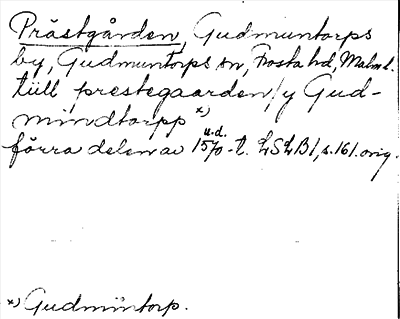 Prästgården, Gudmuntorps
by, Gudmuntorps sn, Frosta hd, Malm l.
tüll prestegaarden, y Gud-
mindtorpp x)
u.d.
förra delen av 1570-t. LSLB1, s.161. orig.
x) Gudmüntorp.